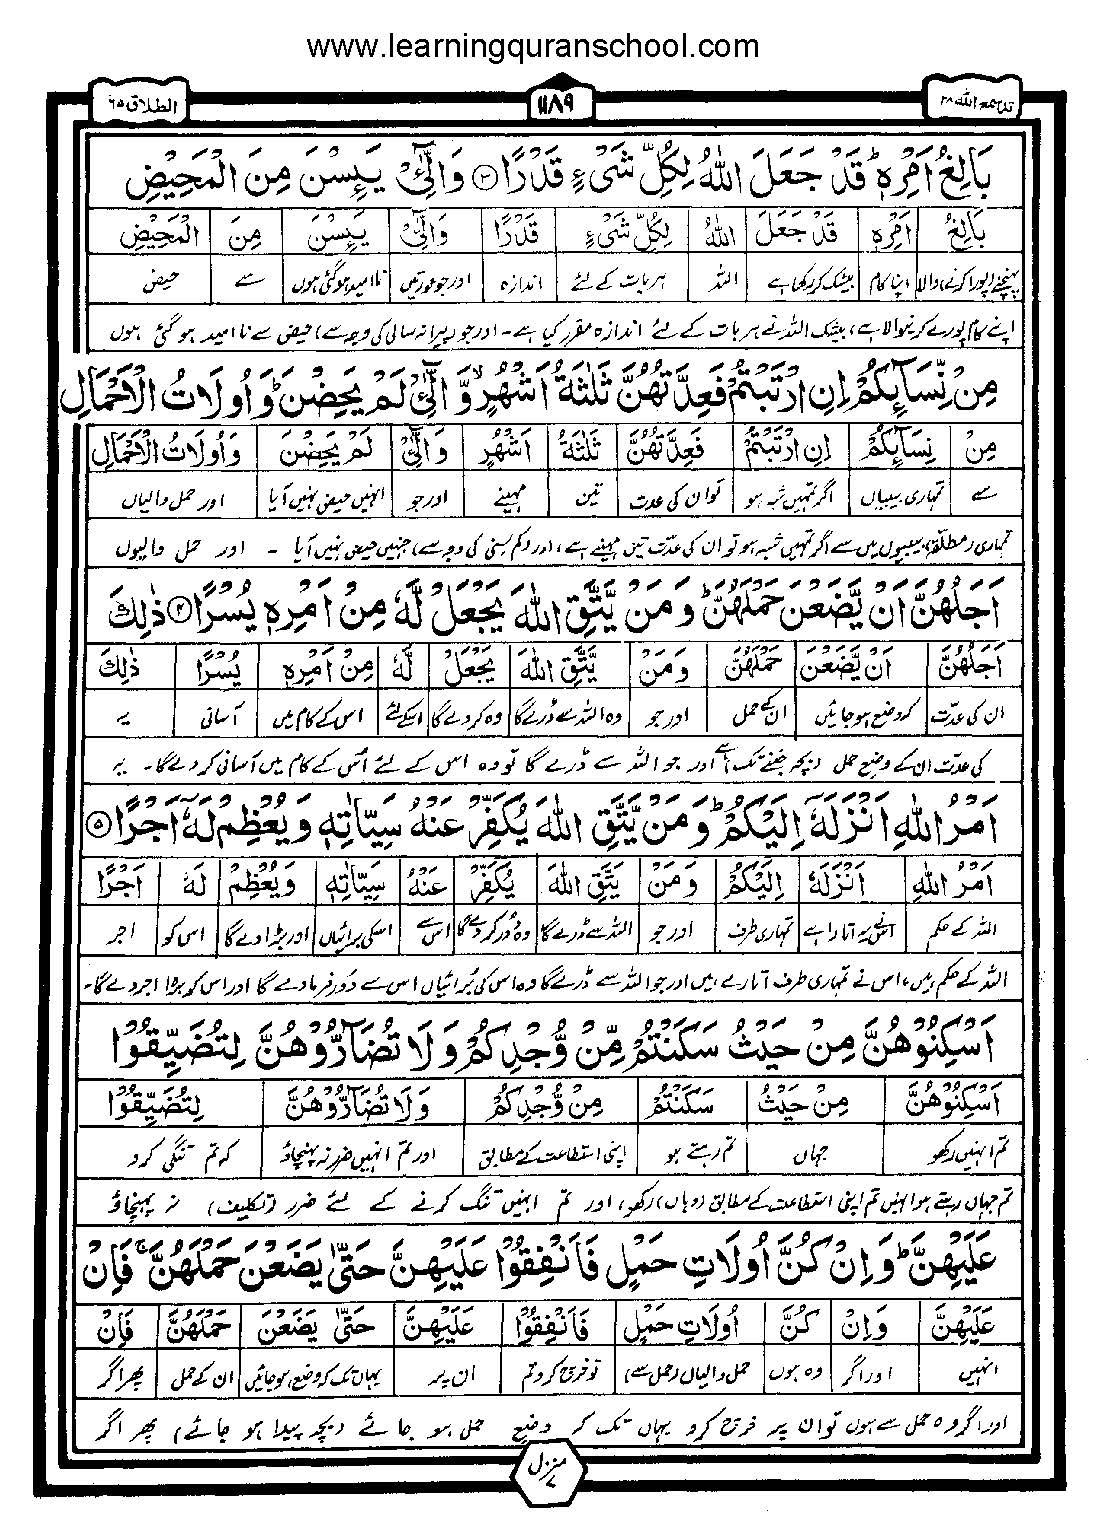 www.learningquranschool.com
قد سمع الله ۲۸
۱۱۸۹
الطلاق ۶۵
بَالِغُ اَمْرِهٖ ؕ قَدْ جَعَلَ اللّٰهُ لِكُلِّ شَیْءٍ قَدْرًا ۳ وَالّٰٓئِیْ یَئِسْنَ مِنَ الْمَحِیْضِ
بَالِغُ اَمْرِهٖ قَدْ جَعَلَ اللّٰهُ لِكُلِّ شَیْءٍ قَدْرًا وَالّٰٓئِیْ یَئِسْنَ مِنَ الْمَحِیْضِ
پہنچنے (پورا کرنے) والا اپنا کام بیشک کر رکھا ہے اللہ ہر بات کے لئے اندازہ اور جو عورتیں ناامید ہو گئی ہوں سے حیض
اپنے کام پورے کرنیوالا ہے، بیشک اللہ نے ہر بات کے لئے اندازہ مقرر کیا ہے۔ اور جو (پیرانہ سالی کی وجہ سے) حیض سے ناامید ہو گئی ہوں
مِنْ نِّسَآئِكُمْ اِنِ ارْتَبْتُمْ فَعِدَّتُهُنَّ ثَلٰثَةُ اَشْهُرٍ وَّالّٰٓئِیْ لَمْ یَحِضْنَ ؕ وَاُولَاتُ الْاَحْمَالِ
مِنْ نِسَآئِكُمْ اِنِ ارْتَبْتُمْ فَعِدَّتُهُنَّ ثَلٰثَةُ اَشْهُرٍ وَالّٰٓئِیْ لَمْ یَحِضْنَ وَاُولَاتُ الْاَحْمَالِ
سے تمہاری بیبیاں اگر تمہیں شبہ ہو تو ان کی عدت تین مہینے اور جو انہیں حیض نہیں آیا اور حمل والیاں
تمہاری (مطلقہ) بیبیوں میں سے اگر تمہیں شبہ ہو تو ان کی عدت تین مہینے ہے، اور (کم سنی کی وجہ سے) جنہیں حیض نہیں آیا ۔ اور حمل والیوں
اَجَلُهُنَّ اَنْ یَّضَعْنَ حَمْلَهُنَّ ؕ وَمَنْ یَّتَّقِ اللّٰهَ یَجْعَلْ لَّهٗ مِنْ اَمْرِهٖ یُسْرًا ۴ ذٰلِكَ
اَجَلُهُنَّ اَنْ یَّضَعْنَ حَمْلَهُنَّ وَمَنْ یَّتَّقِ اللّٰهَ یَجْعَلْ لَّهٗ مِنْ اَمْرِهٖ یُسْرًا ذٰلِكَ
ان کی عدت کہ وضع ہو جائیں ان کے حمل اور جو وہ اللہ سے ڈرے گا وہ کر دے گا اسکے لئے اس کے کام میں آسانی یہ
کی عدت ان کے وضع حمل (بچہ جننے تک) ہے اور جو اللہ سے ڈرے گا تو وہ اس کے لئے اُس کے کام میں آسانی کر دے گا۔ یہ
اَمْرُ اللّٰهِ اَنْزَلَهٗۤ اِلَیْكُمْ ؕ وَمَنْ یَّتَّقِ اللّٰهَ یُكَفِّرْ عَنْهُ سَیِّاٰتِهٖ وَیُعْظِمْ لَهٗۤ اَجْرًا ۵
اَمْرُ اللّٰهِ اَنْزَلَهٗۤ اِلَیْكُمْ وَمَنْ یَتَّقِ اللّٰهَ یُكَفِّرْ عَنْهُ سَیِّاٰتِهٖ وَیُعْظِمْ لَهٗ اَجْرًا
اللہ کے حکم اس نے یہ اتارا ہے تمہاری طرف اور جو اللہ سے ڈرے گا وہ دُور کر دے گا اس سے اسکی برائیاں اور بڑا دے گا اس کو اجر
اللہ کے حکم ہیں، اس نے تمہاری طرف اتارے ہیں اور جو اللہ سے ڈرے گا وہ اس کی برائیاں اس سے دُور فرما دے گا اور اس کو بڑا اجر دے گا۔
اَسْكِنُوْهُنَّ مِنْ حَیْثُ سَكَنْتُمْ مِّنْ وُّجْدِكُمْ وَلَا تُضَآرُّوْهُنَّ لِتُضَیِّقُوْا
اَسْكِنُوْهُنَّ مِنْ حَیْثُ سَكَنْتُمْ مِنْ وُّجْدِكُمْ وَلَا تُضَآرُّوْهُنَّ لِتُضَیِّقُوْا
تم انہیں رکھو جہاں تم رہتے ہو اپنی استطاعت کے مطابق اور تم انہیں ضرر نہ پہنچاؤ کہ تم تنگی کرو
تم جہاں رہتے ہو انہیں تم اپنی استطاعت کے مطابق (وہاں) رکھو، اور تم انہیں تنگ کرنے کے لئے ضرر (تکلیف) نہ پہنچاؤ
عَلَیْهِنَّ ؕ وَاِنْ كُنَّ اُولَاتِ حَمْلٍ فَاَنْفِقُوْا عَلَیْهِنَّ حَتّٰی یَضَعْنَ حَمْلَهُنَّ ۚ فَاِنْ
عَلَیْهِنَّ وَاِنْ كُنَّ اُولَاتِ حَمْلٍ فَاَنْفِقُوْا عَلَیْهِنَّ حَتّٰی یَضَعْنَ حَمْلَهُنَّ فَاِنْ
انہیں اور اگر وہ ہوں حمل والیاں (حمل سے) تو خرچ کرو تم ان پر یہاں تک کہ وضع ہو جائیں ان کے حمل پھر اگر
اور اگر وہ حمل سے ہوں تو ان پر خرچ کرو یہاں تک کہ وضع حمل ہو جائے (بچہ پیدا ہو جائے) پھر اگر
منزل ۷